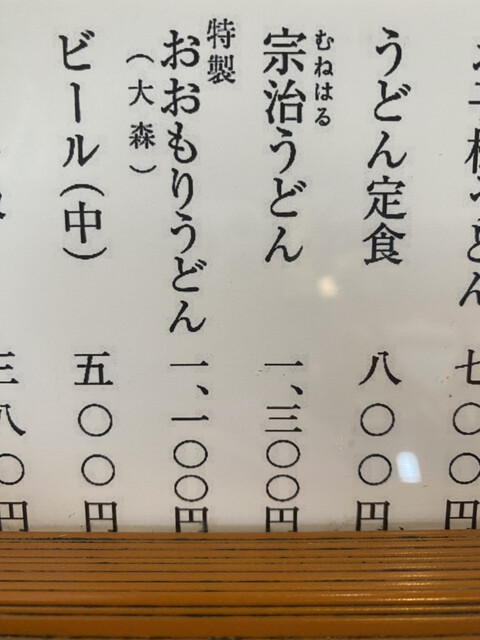 うどん 七〇〇円
うどん定食 八〇〇円
むねはる
宗治うどん 一、三〇〇円
特製
おおもりうどん 一、一〇〇円
（大森）
ビール（中） 五〇〇円
三八〇円